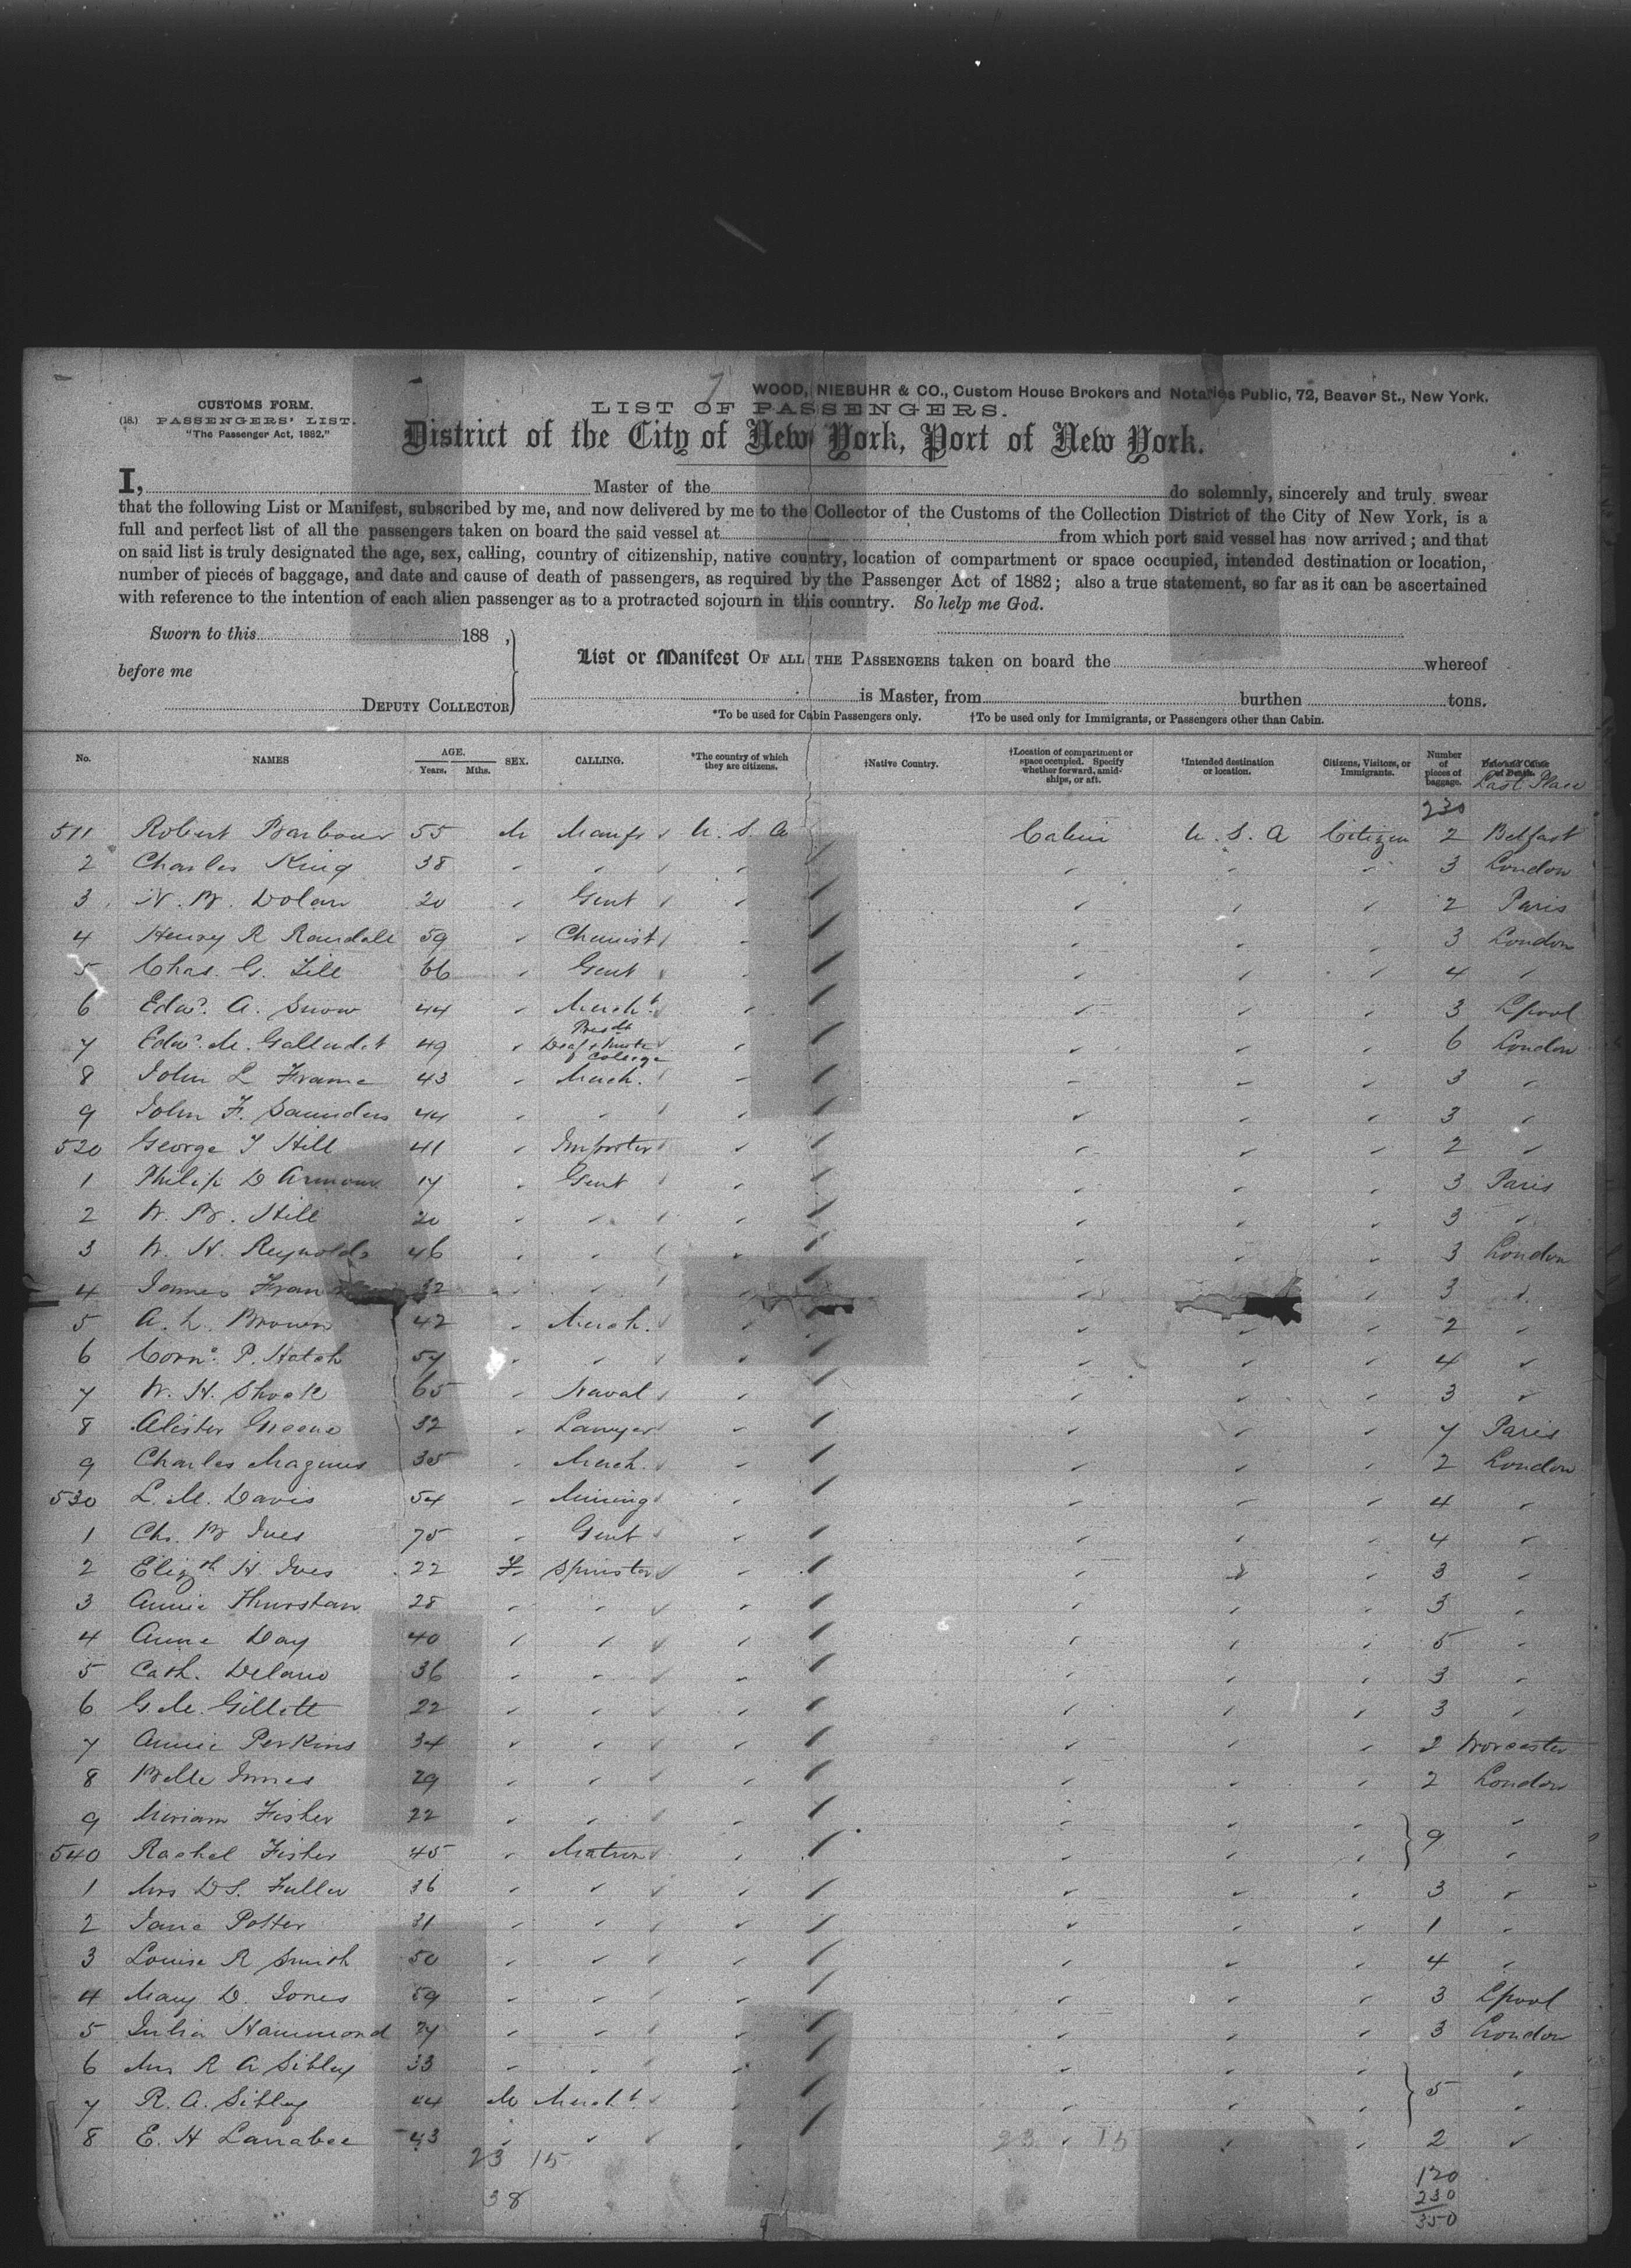 7
WOOD, NIEBUHR & CO., Custom House Brokers and Notaries Public, 72, Beaver St., New York.
CUSTOMS FORM.
(18.) PASSENGERS' LIST.
"The Passenger Act, 1882."
LIST OF PASSENGERS.
District of the City of New York, Port of New York.
I, Master of the do solemnly, sincerely and truly swear
that the following List or Manifest, subscribed by me, and now delivered by me to the Collector of the Customs of the Collection District of the City of New York, is a
full and perfect list of all the passengers taken on board the said vessel at from which port said vessel has now arrived; and that
on said list is truly designated the age, sex, calling, country of citizenship, native country, location of compartment or space occupied, intended destination or location,
number of pieces of baggage, and date and cause of death of passengers, as required by the Passenger Act of 1882; also a true statement, so far as it can be ascertained
with reference to the intention of each alien passenger as to a protracted sojourn in this country. So help me God.
Sworn to this 188 ,
before me
DEPUTY COLLECTOR
List or Manifest OF ALL THE PASSENGERS taken on board the whereof
is Master, from burthen tons.
*To be used for Cabin Passengers only. †To be used only for Immigrants, or Passengers other than Cabin.
No. NAMES AGE. Years. Mths. SEX. CALLING. *The country of which they are citizens. †Native Country. †Location of compartment or space occupied. Specify whether forward, amidships, or aft. †Intended destination or location. Citizens, Visitors, or Immigrants. Number of pieces of baggage. Date and Cause of Death. Last Place
230
511 Robert Barbour 55 M Manfr U. S. A Cabin U. S. A Citizen 2 Belfast
2 Charles King 38 3 London
3 N. B. Dolan 20 Gent 2 Paris
4 Henry R Randall 59 Chemist 3 London
5 Chas. G. 66 Gent 4
6 Edwd. A. Snow 44 Mercht. 3 Lpool
7 Edwd. M. Gallaudet 49 Presdt Deaf & Mute College 6 London
8 John L Frame 43 Merch. 3
9 John F. Saunders 44 3
520 George T Hill 41 Importer 2
1 Philip D Armour 17 Gent 3 Paris
2 W. B. Hill 20 3
3 W. H. Reynolds 46 3 London
4 James 32 3
5 A. L. Brown 42 Merch. 2
6 Corns. P. Hatch 57 4
7 W. H. Shock 65 Naval 3
8 Alister Greene 32 Lawyer 7 Paris
9 Charles Magnus 35 Merch. 2 London
530 L. M. Davis 54 Mining 4
1 Ch. B Ives 75 Gent 4
2 Elizth H. Ives 22 F. Spinster 3
3 Annie Thurstan 28 3
4 Anne Day 40 5
5 Cath. Delano 36 3
6 G M. Gillett 22 3
7 Annie Perkins 34 2 Worcester
8 Belle Innes 29 2 London
9 Miriam Fisher 22
540 Rachel Fisher 45 Matron 9
1 Mrs D S. Fuller 36 3
2 Jane Potter 31 1
3 Louise R Smith 50 4
4 Mary D. Jones 59 3 Lpool
5 Julia Hammond 3 London
6 Mrs R A Sibley 33
7 R. A. Sibley 44 M Mercht. 5
8 E. H Larrabee 43 2
23 15 23 15
38
120
230
350